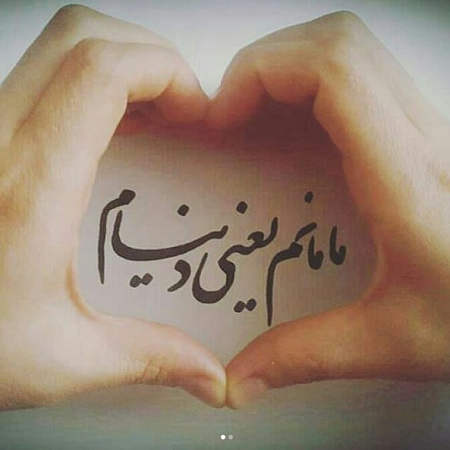 مامانم یعنی دنیام